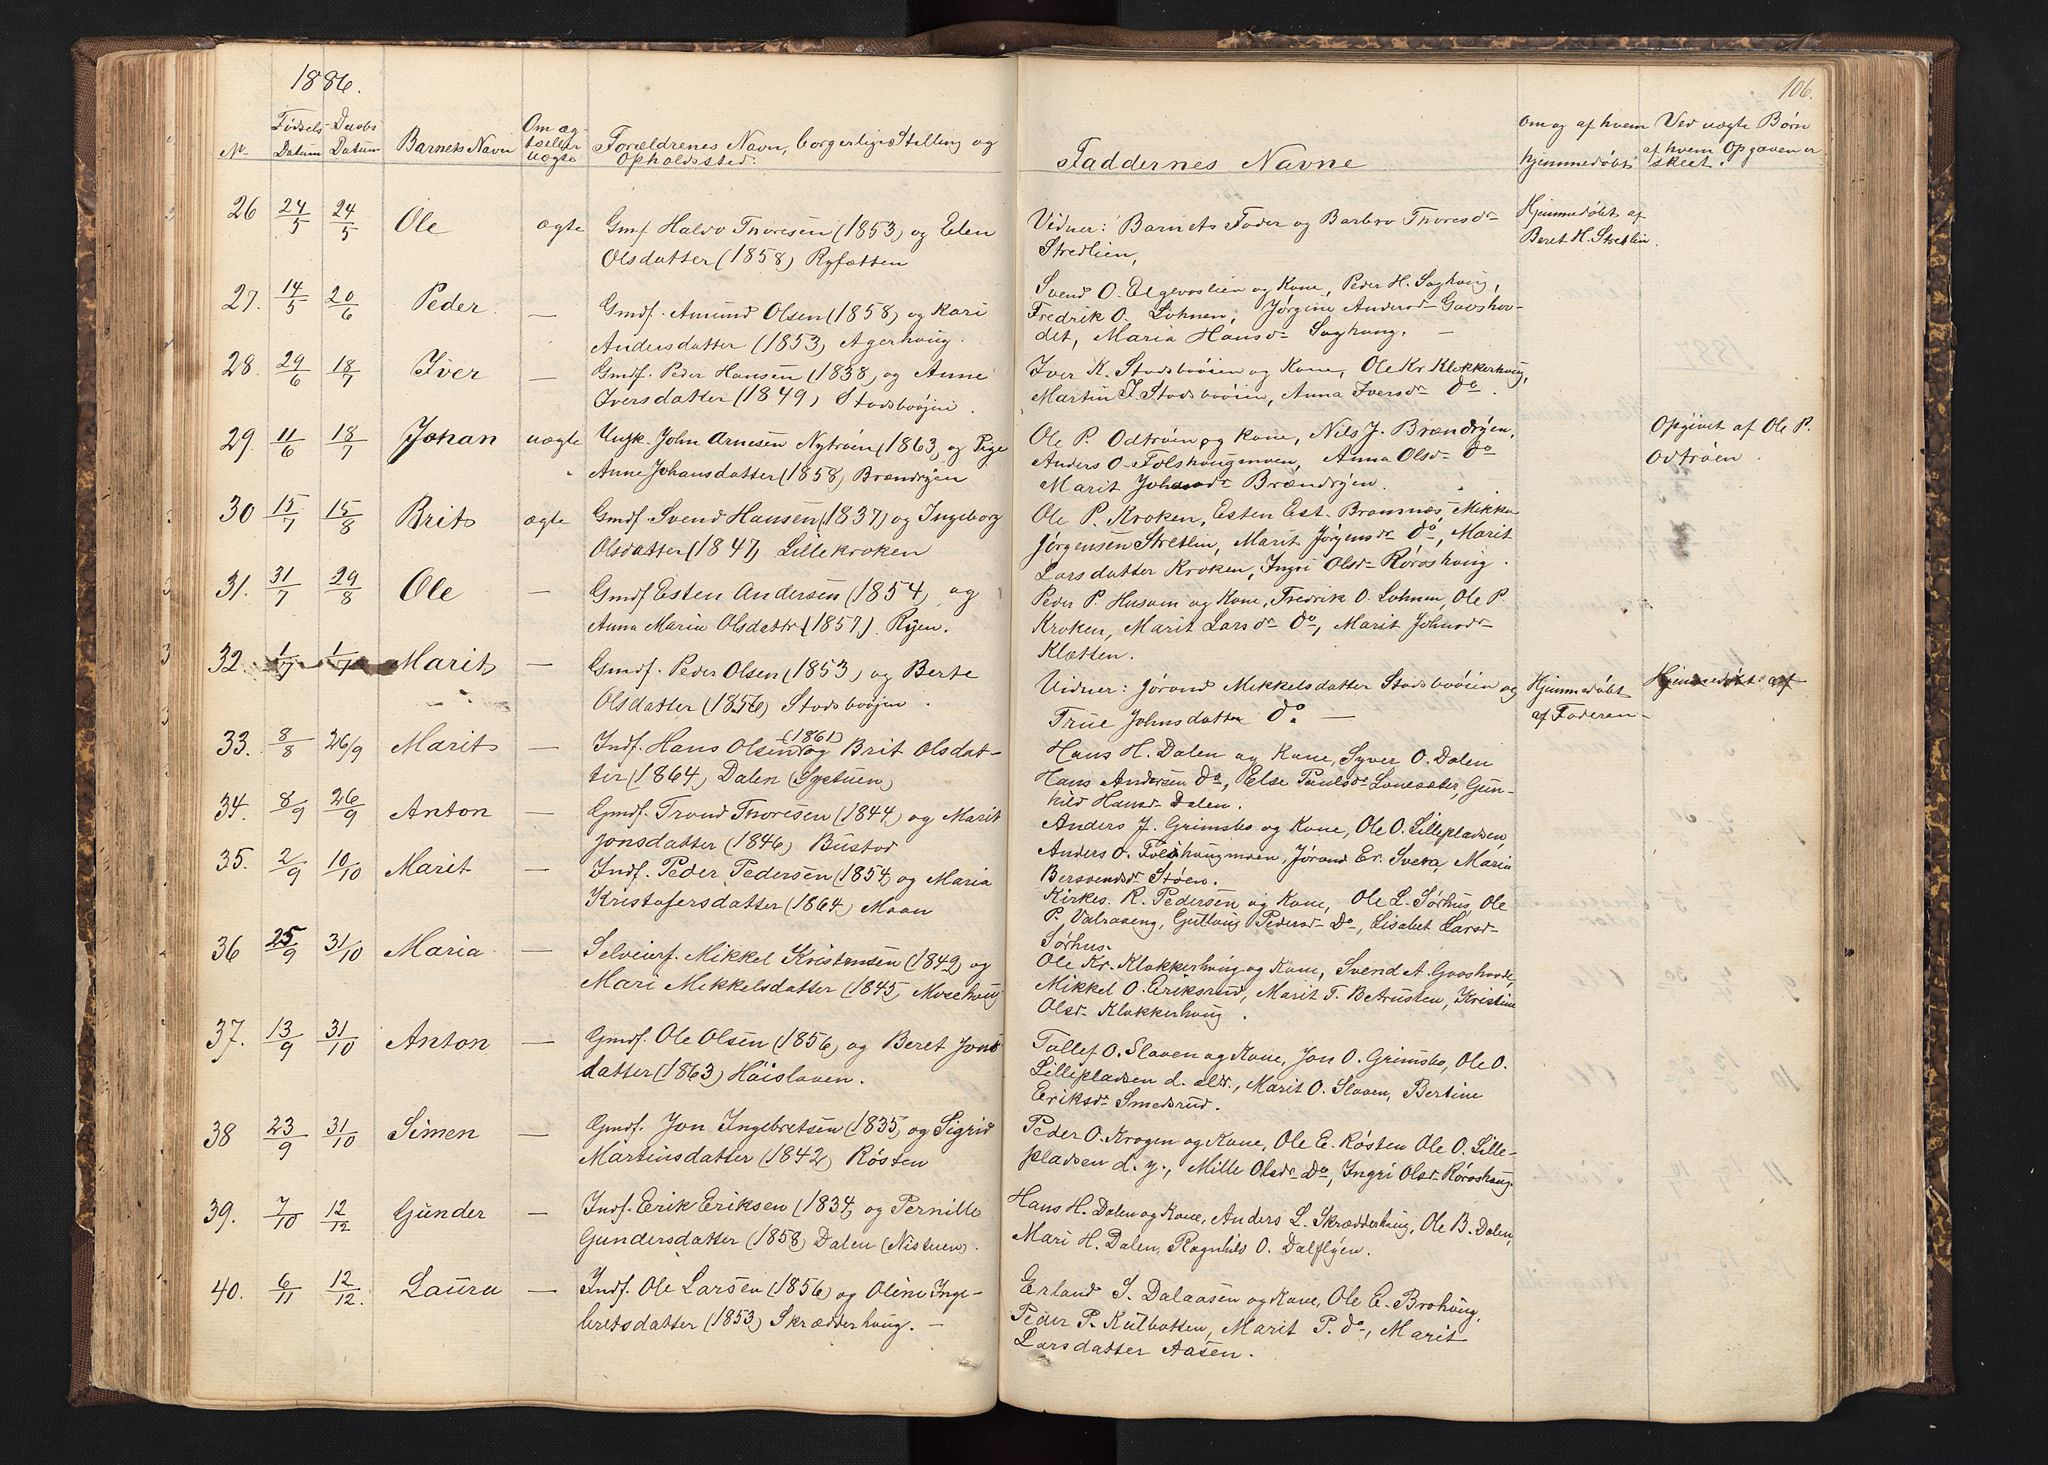 1886.
106.
No
Fødsels Datum
Daabs Datum
Barnets Navn
Om ægte eller uægte
Forældrenes Navn, borgerlige Stilling og
Opholdssted:
Faddernes Navne
om og af hvem
hjemmedøbt
Ved uægte Børn
af hvem Opgaven er
skeet.
26 24/5 24/5 Ole ægte Gmf. Haldo Thoresen (1853) og Elen
Olsdatter (1858) Ryfætten
Vidner: Barnets Fader og Barbro Thoresdr
Stredlien,
Hjemmedøbt af
Beret H. Stretlin.
27. 14/5 20/6 Peder — Gmdf. Amund Olsen (1858) og Kari
Andersdatter (1853) Agerhaug.
Svend O. Elgevaslien og Kone, Peder H. Saghaug,
Fredrik O. Lohnen, Jørgine Andersd Gaashov-
det, Maria Hansdr Saghaug. —
28. 29/6 18/7 Iver — Gmdf. Peder Hansen (1838) og Anne
Iversdatter (1849) Stodsbøjen.
Iver K. Stodsbøien og Kone, Ole Kr Klokkerhaug,
Martin I. Stodsbøien, Anna Iversdr do.
29. 11/6 18/7 Johan uægte Ungk. John Arnesen Nytrøen (1863) og Pige
Anne Johansdatter (1858) Brændryen
Ole P. Odtrøen og Kone, Nils J. Brændryen,
Anders O. Folshaugmoen, Anna Olsdr do
Marit Johansdr Brændryen.
Opgivet af Ole P.
Odtrøen.
30 15/7 15/8 Brit ægte Gmdf. Svend Hansen (1837) og Ingeborg
Olsdatter (1847) Lillekroken
Ole P. Kroken, Esten Est. Bramnæs Mikkel
Jørgensen Stretlin, Marit Jørgensdr do, Marit
Larsdatter Kroken, Ingri Olsdr Røroshaug.
31. 31/7 29/8 Ole — Gmdf Esten Andersen (1854) og
Anna Maria Olsdattr (1857). Ryen.
Peder P. Husum og Kone, Fredrik O. Lohnen, Ole P.
Kroken, Marit Larsdr do, Marit Johnsdr
Klætten.
32. 1/7 1/7 Marit — Gmdf. Peder Olsen (1853) og Berte
Olsdatter (1856) Stodsbøjen.
Vidner: Jørand Mikkelsdatter Stodsbøien og
True Johnsdatter do. —
Hjemmedøbt
af Faderen —
Hjemmedøbt af
33. 8/8 26/9 Marit — Indf. Hans Olsen (1861) og Brit Olsdat-
ter (1864) Dalen (Systuen)
Hans H. Dalen og Kone, Syver O. Dalen
Hans Andersen do, Else Paulsdr Lonesæter, Gun-
hild Hansdr Dalen.
34. 8/9 26/9 Anton — Gmdf. Trond Thoresen (1844) og Marit
Jonsdatter (1846) Bustad
Anders J. Grimsbo og Kone, Ole O. Lillepladsen,
Anders O. Folshaugmoen, Jørand Er. Sveia, Maria
Bersvendsdr Støen.
35. 2/9 10/10 Marit — Indf. Peder Pedersen (1854) og Maria
Kristofersdatter (1864) Moan
Kirkes. R. Pedersen og Kone, Ole L. Sørhus, Ole
P. Valraseng, Gullaug Pedersdr Do, Lisabet Larsdr
Sørhus.
36 25/9 31/10 Maria — Selveierf. Mikkel Kristensen (1842) og
Mari Mikkelsdatter (1845) Mosehaug
Ole Kr. Klokkerhaug og Kone, Svend A. Gaashovde,
Mikkel O. Eriksrud, Marit T. Betrusten, Kristine
Olsdr Klokkerhaug.
37. 13/9 31/10 Anton — Gmdf. Ole Olsen (1856) og Beret Jons
datter (1863) Høislaven.
Tollef O. Slaven og Kone, Jon O. Grimsbo, Ole O.
Lillepladsen d. eldr., Marit O. Slaven, Bertine
Eriksdr Smedsrud.
38 23/9 31/10 Simen — Gmdf. Jon Ingebretsen (1835) og Sigrid
Martinsdatter (1842) Røsten
Peder O. Krogen og Kone, Ole E. Røsten Ole O. Lille-
pladsen d. y., Mille Olsdr Do, Ingri Olsdr Røroshaug.
39. 7/10 12/12 Gunder — Indf. Erik Eriksen (1834) og Pernille
Gundersdatter (1858) Dalen (Nistuen).
Hans H. Dalen og Kone, Anders L. Skrædderhaug, Ole B. Dalen,
Mari H. Dalen, Ragnhild O. Dalflyen.
40. 6/11 12/12. Laura — Indf. Ole Larsen (1856) og Oline Inge-
bretsdatter (1853) Skrædderhaug. —
Erland S. Dalaasen og Kone, Ole E. Brohaug,
Peder P. Kulbotten, Marit P. do, Marit
Larsdatter Aasen.